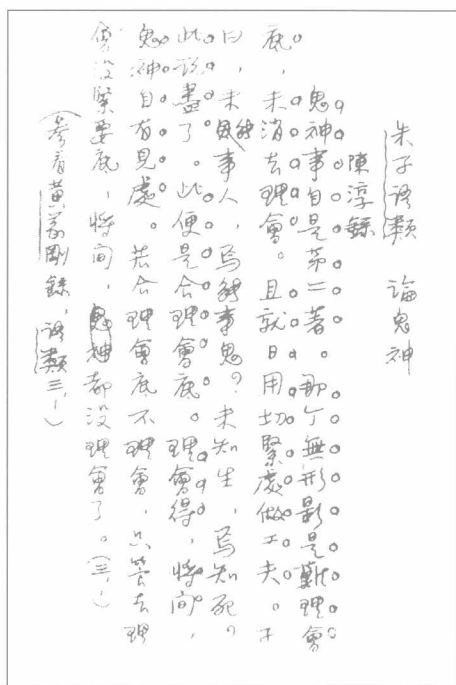 朱子語類 論鬼神
陳淳錄
鬼神事自是第二著。那个無形影是難理會
底，未消去理會。且就日用切緊處做工夫。子
曰，未能事人，焉能事鬼？未知生，焉知死？
此說盡了。此便是合理會底。理會得，將間，
鬼神自有見處。若合理會底不理會，只管去理
會沒緊要底，將間，鬼神都沒理會了。（三，1）
（參看黃義剛錄，語類三，1）